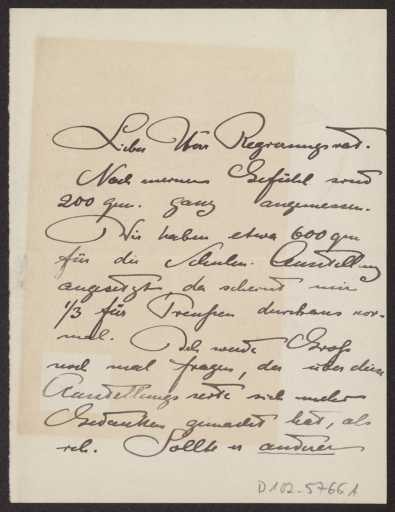 Lieber Herr Regierungsrat.
Nach meinem Gefühl sind
200 qm. ganz angemessen.
Wir haben etwa 600 qm
für die Schulen-Ausstellung
angesetzt, da scheint mir
1/3 für Preußen durchaus nor-
mal. Ich werde Groß
noch mal fragen, der über diese
Ausstellungs seite sich mehr
Gedanken gemacht hat, als
ich. Sollte er anderer
D102-5766A